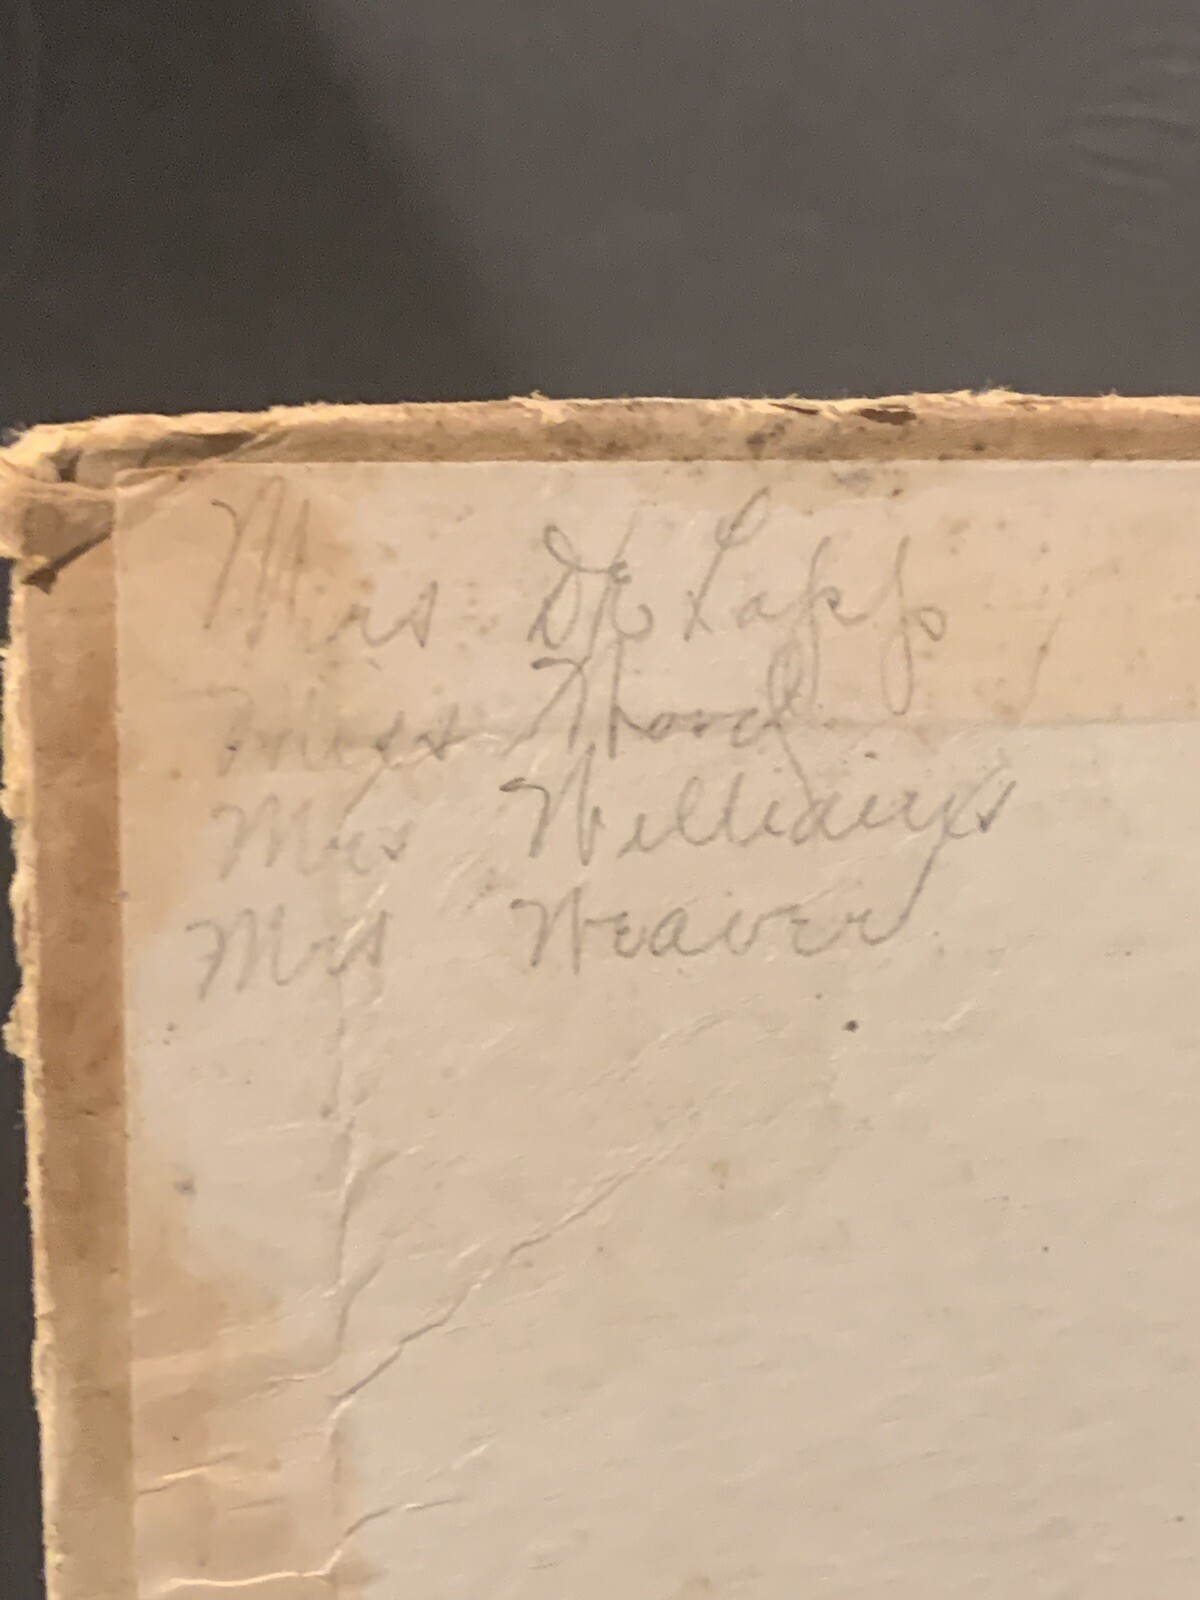 Mrs De Lapp
Miss
Mrs Williams
Mrs Weaver